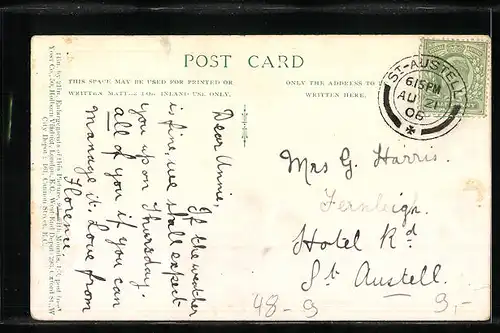 POST CARD
THIS SPACE MAY BE USED FOR PRINTED OR
WRITTEN MATTER FOR INLAND USE ONLY.
ONLY THE ADDRESS TO
WRITTEN HERE.
ST-AUSTELL
6.15PM
AU 21
06
Dear Annie,
If the weather
is fine, we shall expect
you upon Thursday.
all of you if you can
manage it. Love from
Florence
Mrs G. Harris
Fernleigh
Hotel Rd
St Austell
48-9
9,-
Enlargements of this Picture,
Holborn Viaduct, London, E.C. West End Depot
City Depot